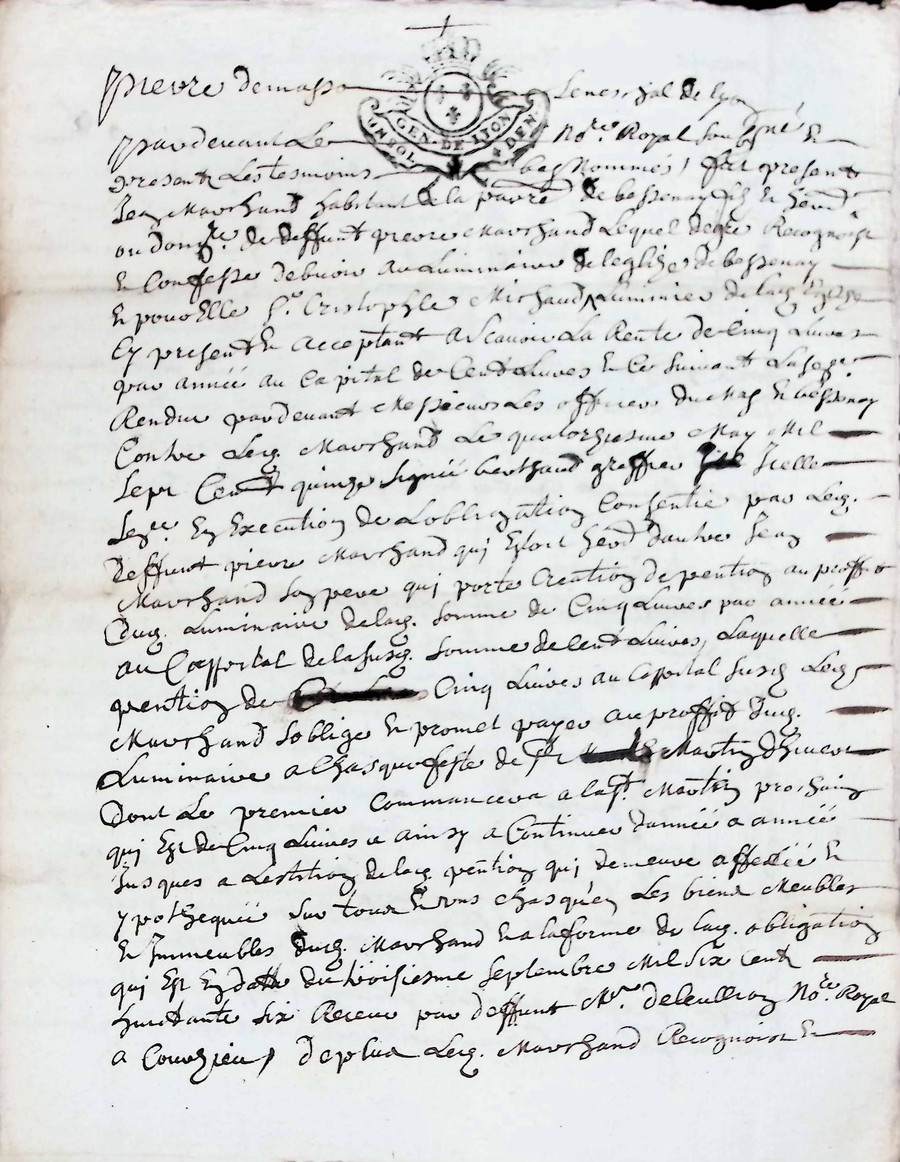 pierre demasso Seneschal de lyon
GEN. DE LYON
DEN.
pardevant Le No.re Royal soubsigné Et
presents Les tesmoins bas Nommés, fut present
Jean Marchand habitant de la parre. de bessenay fils Et herd.
ou don.re de deffunt pierre Marchand Lequel degre Recognoist
Et Confesse debvoir au Luminaire de leglize de bessenay
Et pour Elle Sr. Cristophle Michaud Luminier de lad. Eglize
Cy present Et acceptant ascavoir La Rente de Cinq Livres
par année au Capital de Cent Livres Et Ce suivant La
Rendue pardevant Messieurs Les officiers du Mas Et bessenay
Contre Led. Marchand Le quatorziesme May Mil
sept Cent quinze signée berthaud greffier Icelle
En Execution de Lobligation Consentie par Led.
deffunt pierre Marchand qui Estoit herd. dautre Jean
Marchand son pere qui porte Creation de pention au proffit
dud. Luminaire delad. somme de Cinq Livres par année
au Cappital de la susd. somme de Cent Livres, Laquelle
pention de Cinq Livres au Cappital susd. Led.
Marchand soblige Et promet payer au proffit dud.
Luminaire a Chasque feste de St Martin dhiver
Dont Le premier Commancera a la St. Martin prochain
qui Est de Cinq Livres Et ainsy a Continuer dannée a année
Jusques a Lextition delad. pention qui demeure affectée Et
ypothequée sur tous Et uns Chasquen Les biens Meubles
Et Immeubles dud. Marchand Et a la forme de lad. obligation
qui Est En datte du troisiesme septembre Mil six Cent
huictante six Receue par deffunt Me. deleullion No.re Royal
a Courzieu, deplus Led. Marchand Recognoist Et